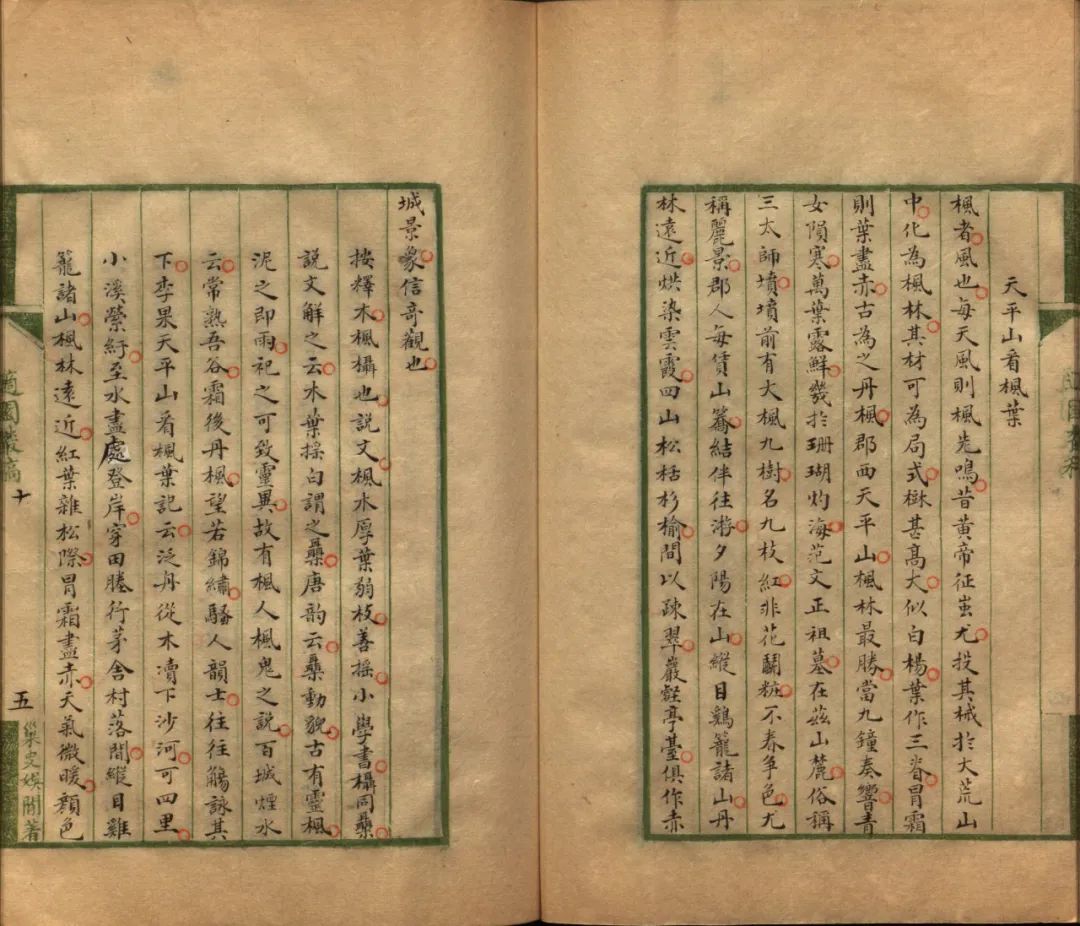 天平山看楓葉
楓者風也每天風則楓先鳴昔黃帝征蚩尤投其械於大荒山
中化為楓林其材可為局式樹甚高大似白楊葉作三脊冒霜
則葉盡赤古為之丹楓郡西天平山楓林最勝當九鐘奏響青
女隕寒萬葉露鮮幾於珊瑚灼海范文正祖墓在茲山麓俗稱
三太師墳墳前有大楓九樹名九枝紅非花鬭粧不春爭色尤
稱麗景郡人每賃山轎結伴往游夕陽在山縱目鷄籠諸山丹
林遠近烘染雲霞四山松栝杉榆間以疎翠巖壑亭臺俱作赤
城景象信奇觀也
按釋木楓欇也說文楓木厚葉弱枝善搖小學書欇同㯿
說文解之云木葉搖白謂之㯿唐韵云㯿動貌古有靈楓
泥之即雨祀之可致靈異故有楓人楓鬼之說百城煙水
云常熟吾谷霜後丹楓望若錦繡騷人韻士往往觴詠其
下李果天平山看楓葉記云泛舟從木瀆下沙河可四里
小溪縈紆至水盡處登岸穿田塍行茅舍村落間縱目雞
籠諸山楓林遠近紅葉雜松際冒霜盡赤天氣微暖顏色
適園叢稿
十
五
巢叟娛閒著